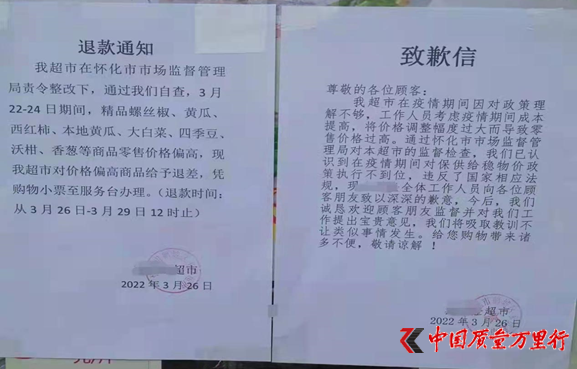 退款通知
我超市在怀化市市场监督管理
局责令整改下，通过我们自查，3月
22-24日期间，精品螺丝椒、黄瓜、
西红柿、本地黄瓜、大白菜、四季豆、
沃柑、香葱等商品零售价格偏高，现
我超市对价格偏高商品给予退差，凭
购物小票至服务台办理。（退款时间：
从3月26日-3月29日12时止）
超市
2022年3月26日
致歉信
尊敬的各位顾客：
我超市在疫情期间因对政策理
解不够，工作人员考虑疫情期间成本
提高，将价格调整幅度过大而导致零
售价格过高。通过怀化市市场监督管
理局对本超市的监督检查，我们已认
识到在疫情期间对保供给稳物价政
策执行不到位，违反了国家相应法
规，现
全体工作人员向各位顾
客朋友致以深深的歉意，今后，我们
诚恳欢迎顾客朋友监督并对我们工
作提出宝贵意见，我们将吸取教训不
让类似事情发生。给您购物带来诸
多不便，敬请谅解！
超市
2022年3月26日
中国质量万里行